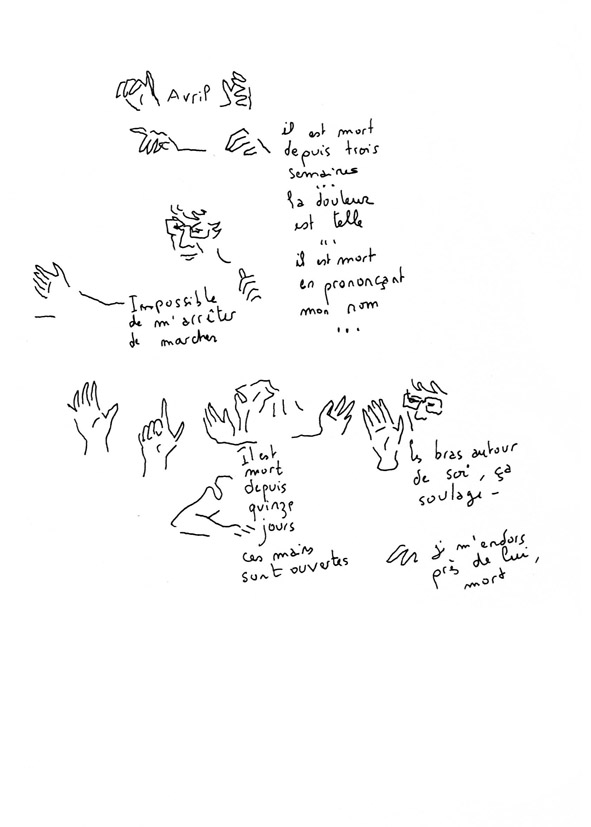 Avril
il est mort
depuis trois
semaines
...
la douleur
est telle
...
il est mort
en prononçant
mon nom
...
Impossible
de m'arrêter
de marcher
Il est
mort
depuis
quinze
jours
ces mains
sont ouvertes
les bras autour
de soi, ça
soulage -
je m'endors
près de lui,
mort